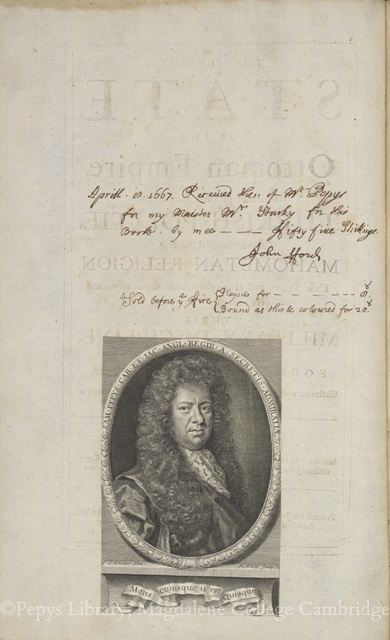 Aprill. 8. 1667. Received then of Mr. Pepys
for my Maister Mr. Starky for this
Booke. by mee — — — ffifty five Shillings
John fford
Sold before ye fire {Playne for — — — — — 8s
{Bound as this & coloured for 20s
SAM. PEPYS. CAR. ET. IAC. ANGL. REGIB. A. SECRETIS. ADMIRALIÆ
Mens cujusque is est Quisque
©Pepys Library, Magdalene College Cambridge